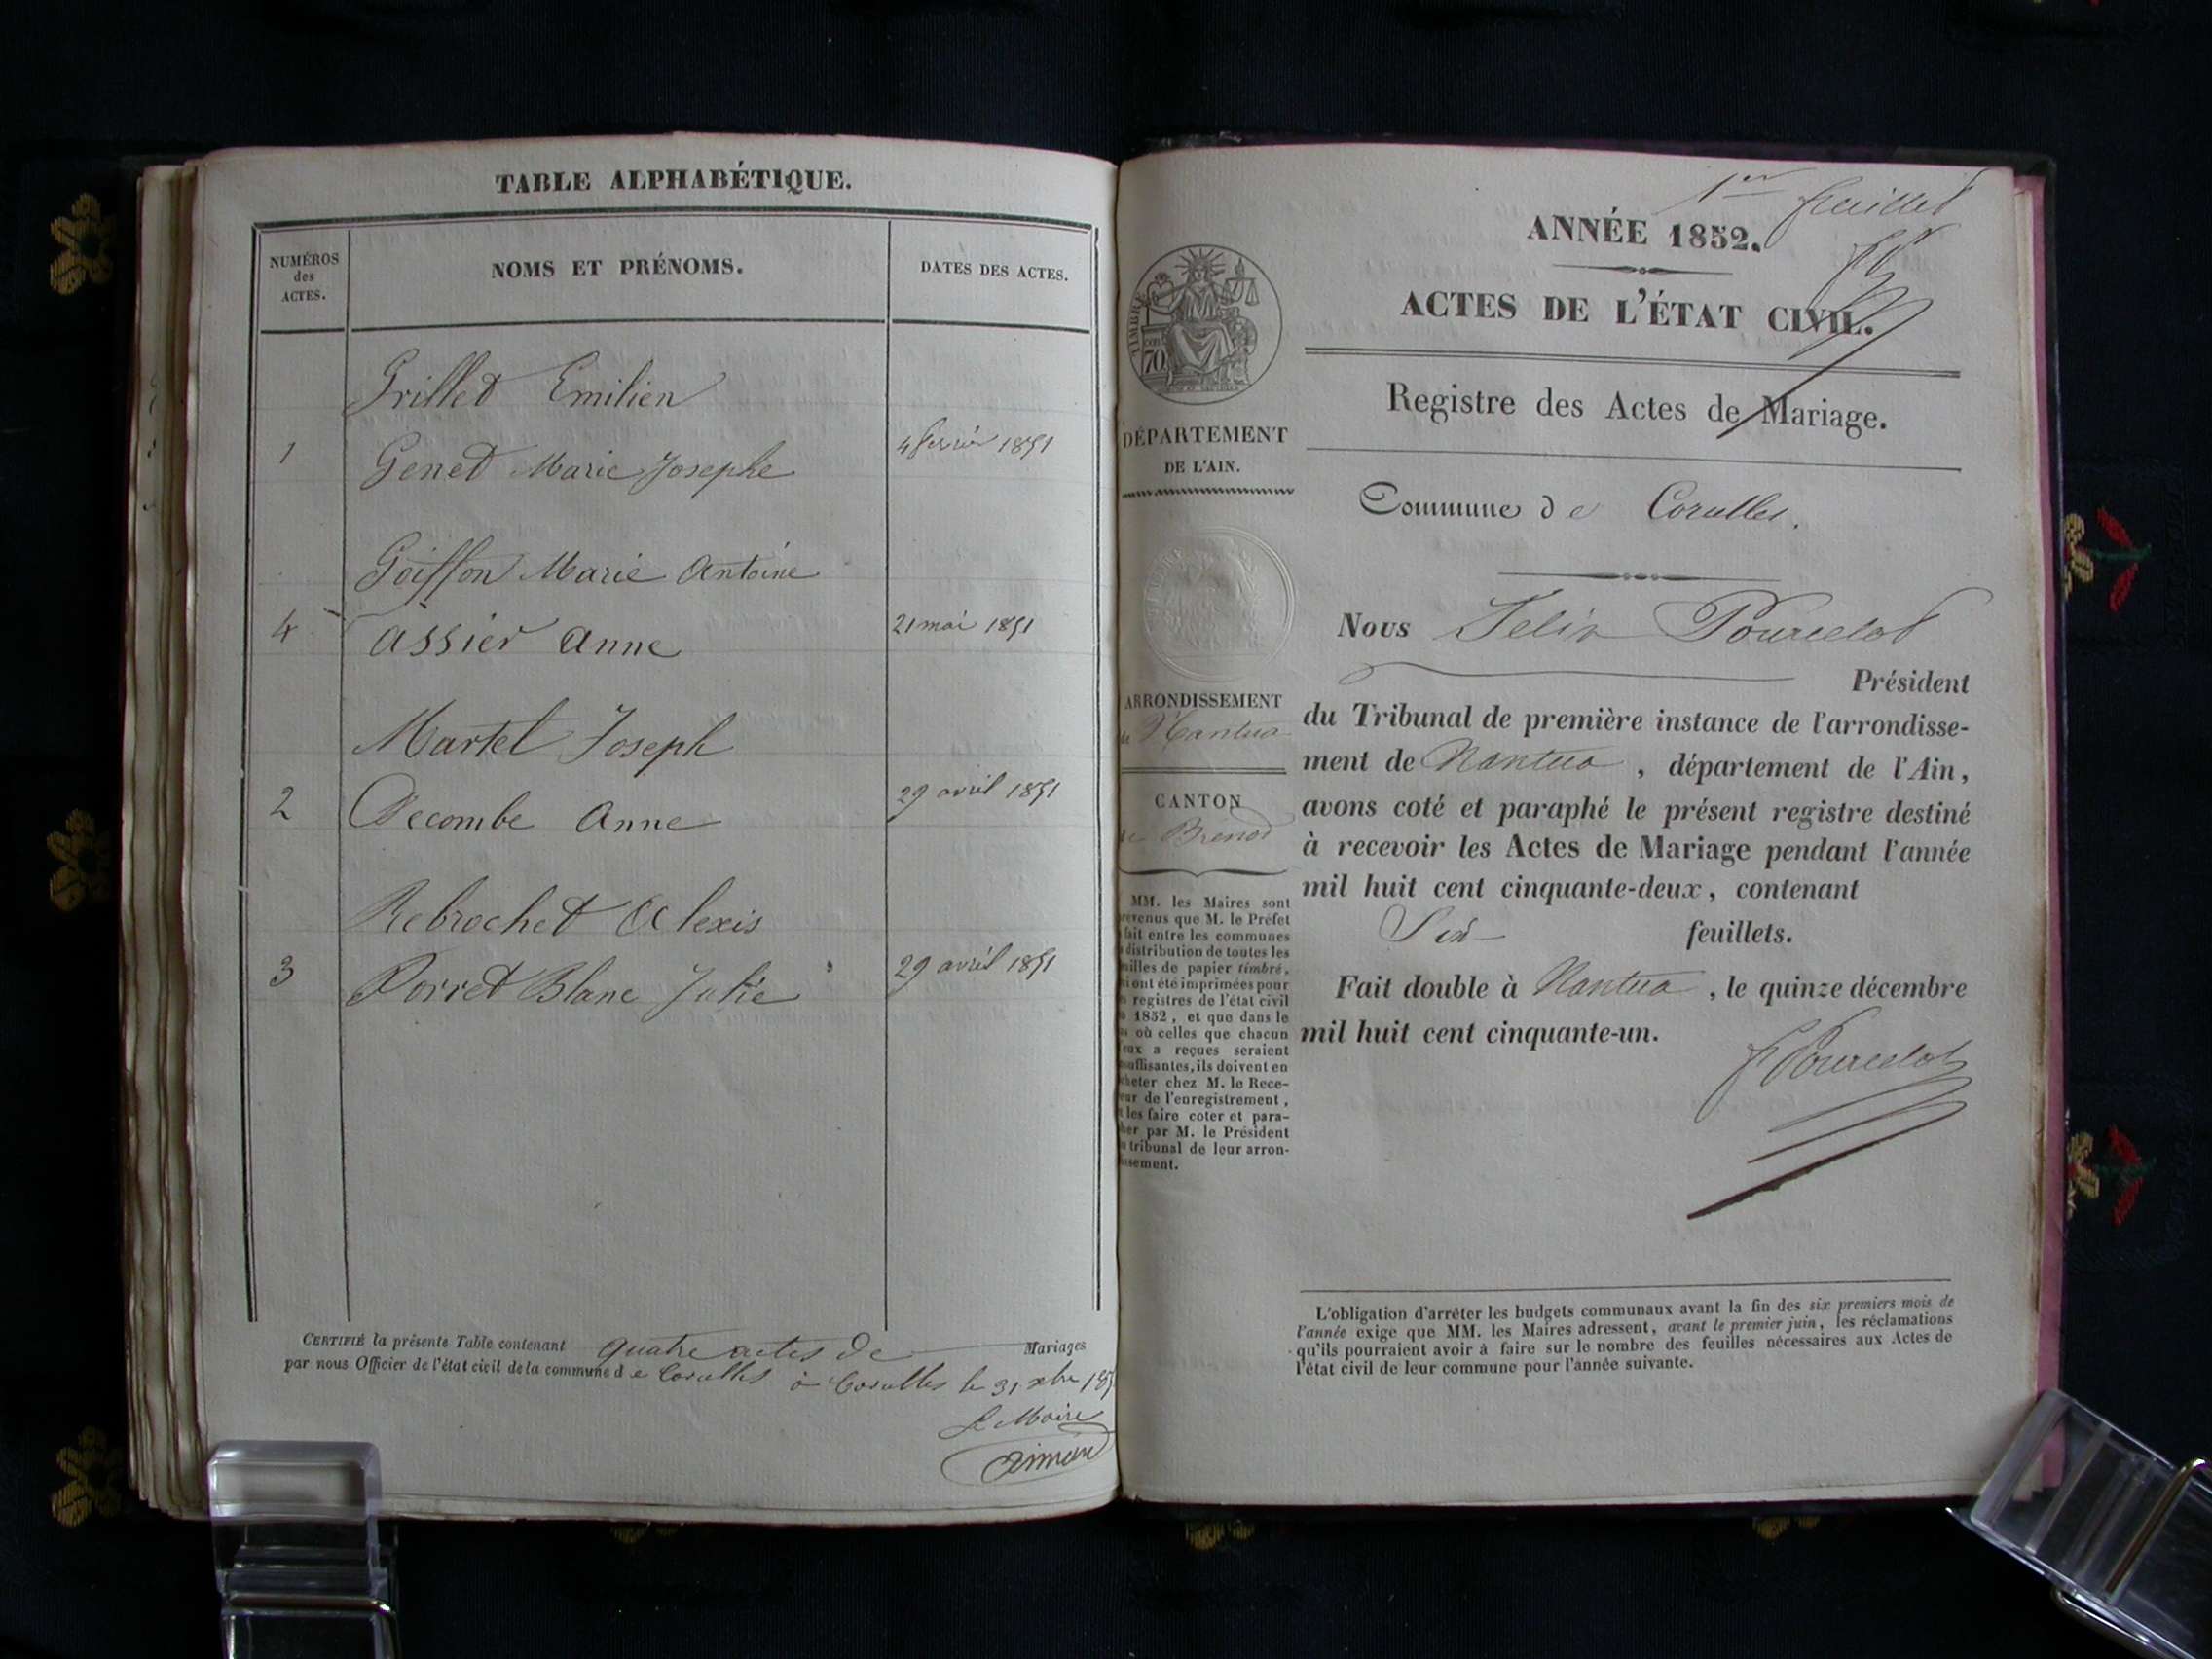 TABLE ALPHABÉTIQUE.
NUMÉROS
des
ACTES.
NOMS ET PRÉNOMS.
DATES DES ACTES.
Grillet Emilien
1 Genet Marie Josephe 4 février 1851
Goiffon Marie Antoine
4 Assier Anne 21 mai 1851
Martel Joseph
2 Decombe Anne 29 avril 1851
Rebrochet Alexis
3 Porret Blanc Julie 29 avril 1851
CERTIFIÉ la présente Table contenant quatre actes de Mariages
par nous Officier de l'état civil de la commune de Corcelles à Corcelles le 31 xbre 185
Le Maire
1er feuillet
ANNÉE 1852.
ACTES DE L'ÉTAT CIVIL.
Registre des Actes de Mariage.
TIMBRE
70
DÉPARTEMENT
DE L'AIN.
Commune de Corcelles.
ARRONDISSEMENT
de Nantua
CANTON
de Brenod
MM. les Maires sont
prévenus que M. le Préfet
fait entre les communes
distribution de toutes les
feuilles de papier timbré,
qui ont été imprimées pour
registres de l'état civil
1852, et que dans le
cas où celles que chacun
d'eux a reçues seraient
insuffisantes, ils doivent en
acheter chez M. le Rece-
veur de l'enregistrement,
et les faire coter et para-
pher par M. le Président
du tribunal de leur arron-
dissement.
Nous Félix Pourcelot
Président
du Tribunal de première instance de l'arrondisse-
ment de Nantua, département de l'Ain,
avons coté et paraphé le présent registre destiné
à recevoir les Actes de Mariage pendant l'année
mil huit cent cinquante-deux, contenant
Six feuillets.
Fait double à Nantua, le quinze décembre
mil huit cent cinquante-un.
F Pourcelot
L'obligation d'arrêter les budgets communaux avant la fin des six premiers mois de
l'année exige que MM. les Maires adressent, avant le premier juin, les réclamations
qu'ils pourraient avoir à faire sur le nombre des feuilles nécessaires aux Actes de
l'état civil de leur commune pour l'année suivante.